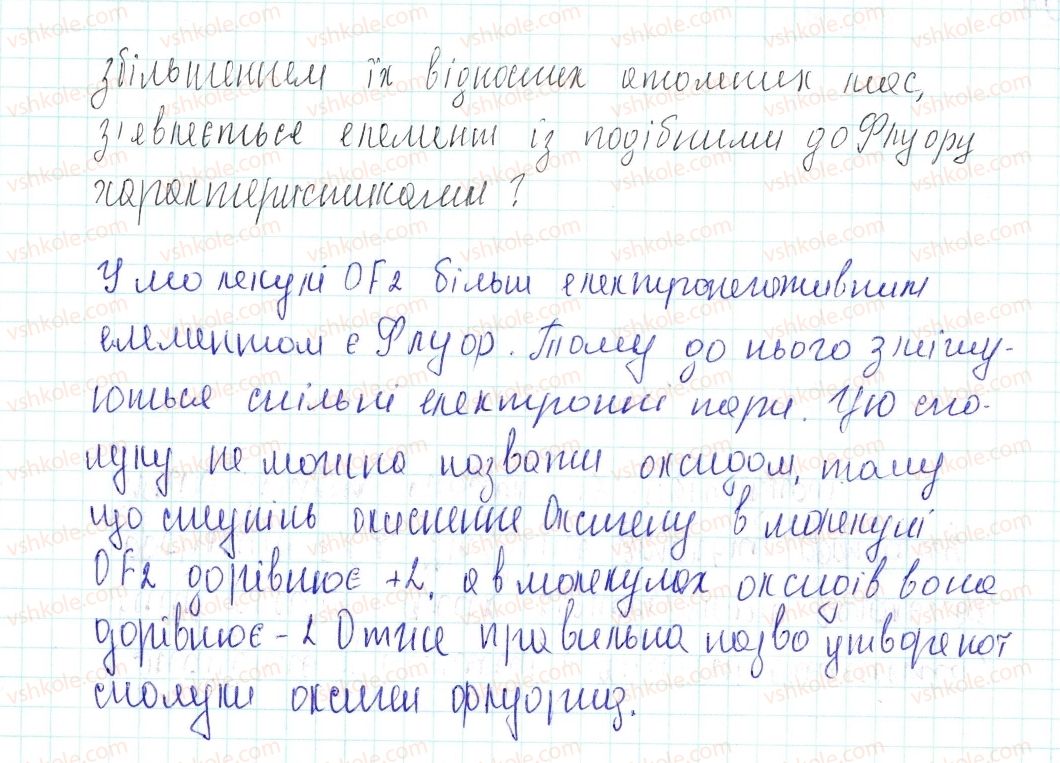 збільшенням їх відносних атомних мас,
з'являється елемент із подібними до Флуору
характеристиками?
У молекулі OF2 більш електронегативним
елементом є Флуор. Тому до нього зміщу-
ються спільні електронні пари. Цю спо-
луку не можна назвати оксидом, тому
що ступінь окиснення Оксигену в молекулі
OF2 дорівнює +2, а в молекулах оксидів вона
дорівнює -2 Отже правильна назва утвореної
сполуки оксиген флуорид.